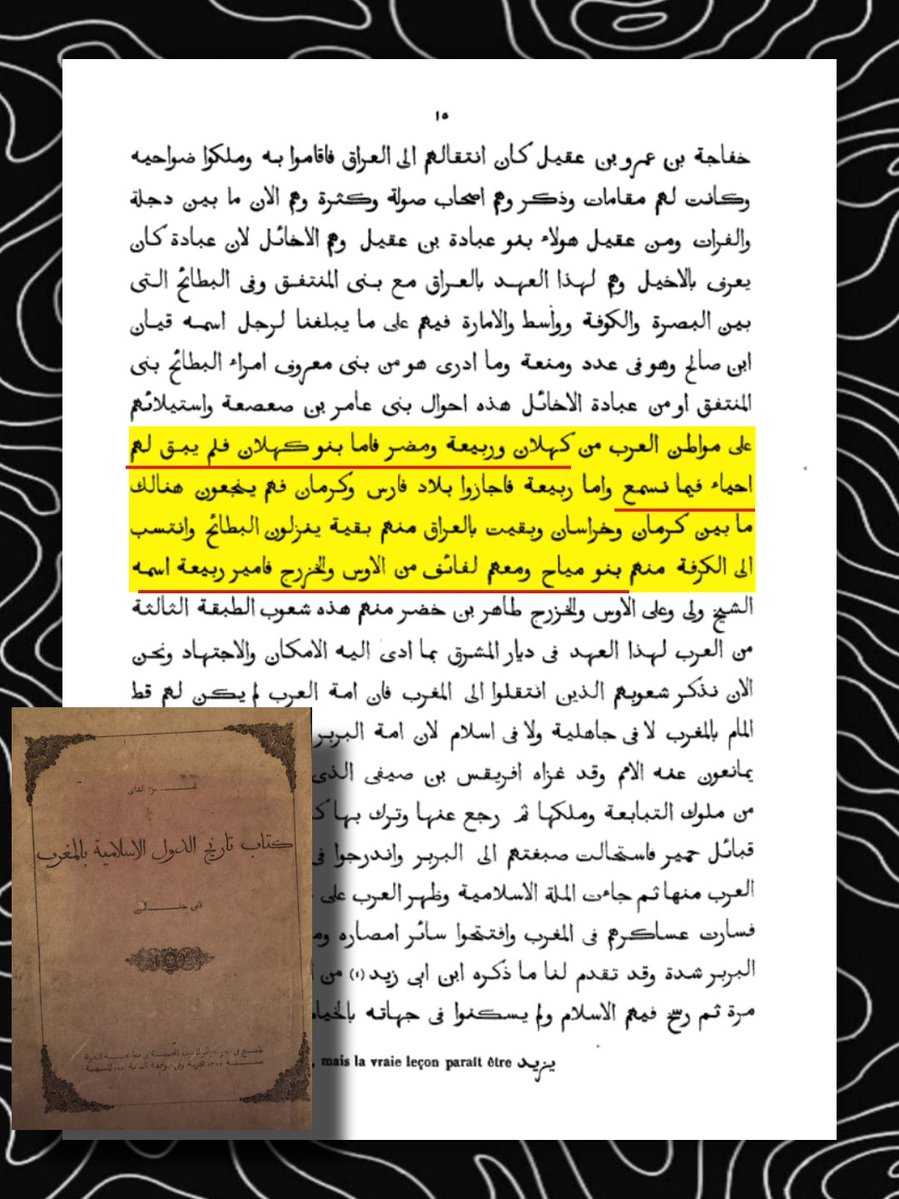 ١٥
خفاجة بن عمرو بن عقيل كان انتقالهم الى العراق فاقاموا به وملكوا ضواحيه
وكانت لهم مقامات وذكر وهم اصحاب صولة وكثرة وهم الان ما بين دجلة
والفرات ومن عقيل هولاء بنو عبادة بن عقيل وهم الاخائل لان عبادة كان
يعرف بالاخيل وهم لهذا العهد بالعراق مع بنى المنتفق وفى البطائح التى
بين البصرة والكوفة وواسط والامارة فيهم على ما يبلغنا لرجل اسمه قيان
ابن صالح وهو فى عدد ومنعة وما ادرى هو من بنى معروف امراء البطائح بنى
المنتفق او من عبادة الاخائل هذه احوال بنى عامر بن صعصعة واستيلائهم
على مواطن العرب من كهلان وربيعة ومضر فاما بنو كهلان فلم يبق لهم
احياء فيما نسمع واما ربيعة فاجازوا بلاد فارس وكرمان فهم ينجعون هنالك
ما بين كرمان وخراسان وبقيت بالعراق منهم بقية ينزلون البطائح وانتسب
الى الكرفة منهم بنو مياح ومعهم لفائف من الاوس والخزرج فامير ربيعة اسمه
الشيخ ولى وعلى الاوس والخزرج طاهر بن خضر منهم هذه شعوب الطبقة الثالثة
من العرب لهذا العهد فى ديار المشرق بما ادى اليه الامكان والاجتهاد ونحن
الان نذكر شعوبهم الذين انتقلوا الى المغرب فان امة العرب لم يكن لهم قط
المام بالمغرب لا فى جاهلية ولا فى اسلام لان امة البربر
يمانعون عنه الامم وقد غزاه افريقس بن صيفى الذى
من ملوك التبابعة وملكها ثم رجع عنها وترك بها
قبائل حمير فاستحالت صبغتهم الى البربر واندرجوا
العرب منها ثم جاءت الملة الاسلامية وظهر العرب على
فسارت عساكرهم فى المغرب وافتتحوا سائر امصاره
البربر شدة وقد تقدم لنا ما ذكره ابن ابى زيد (١) من
مرة ثم رسخ فيهم الاسلام ولم يسكنوا فى جهاته
يزيد mais la vraie leçon paraît être
كتاب تاريخ الدول الاسلامية بالمغرب